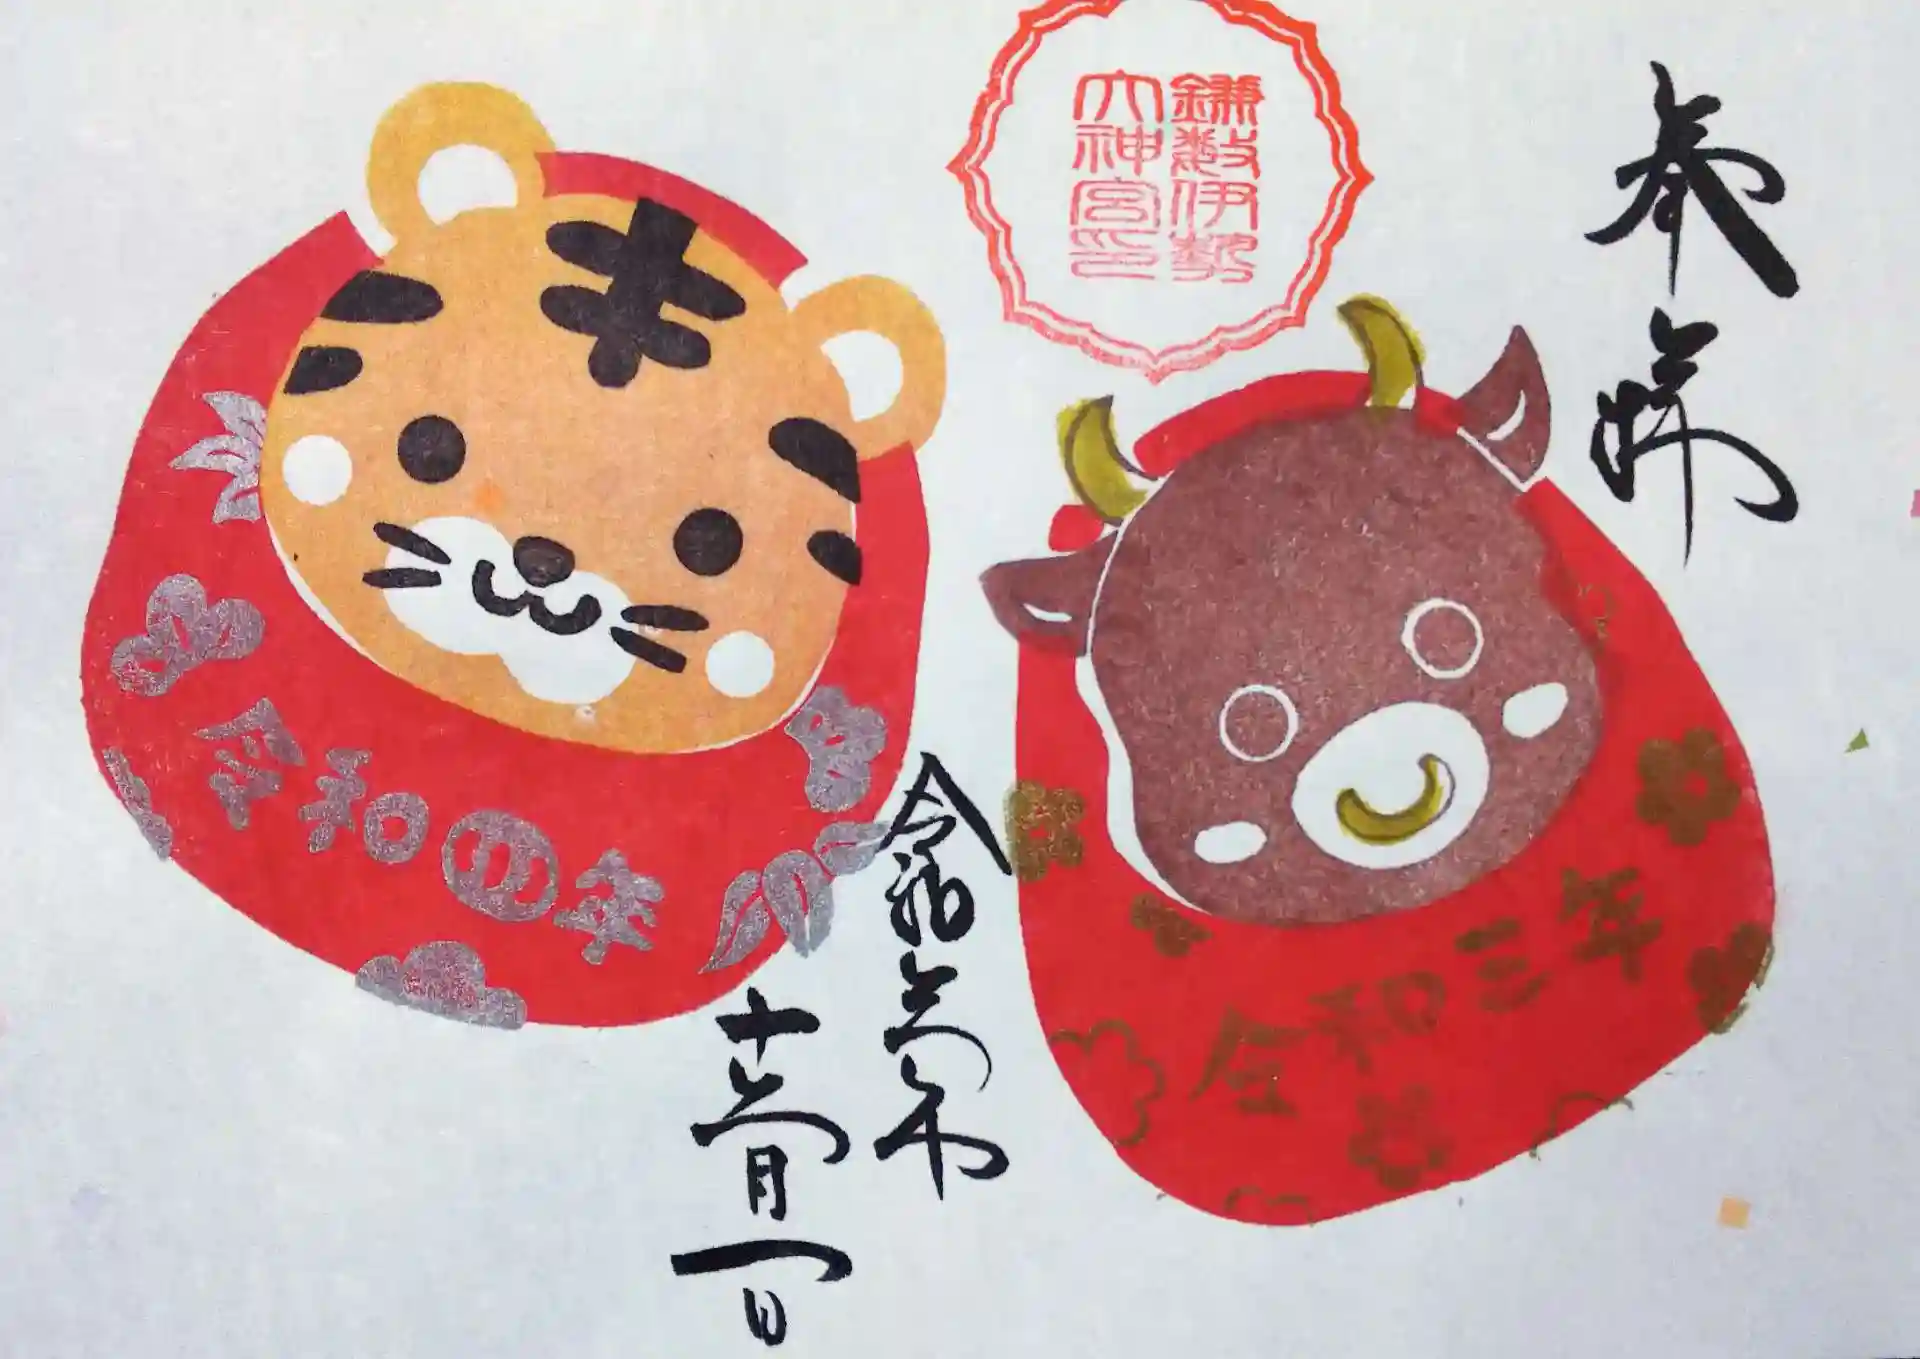 奉拝
鎌数伊勢
大神宮印
令和三年
令和三年
十二月一日
令和四年